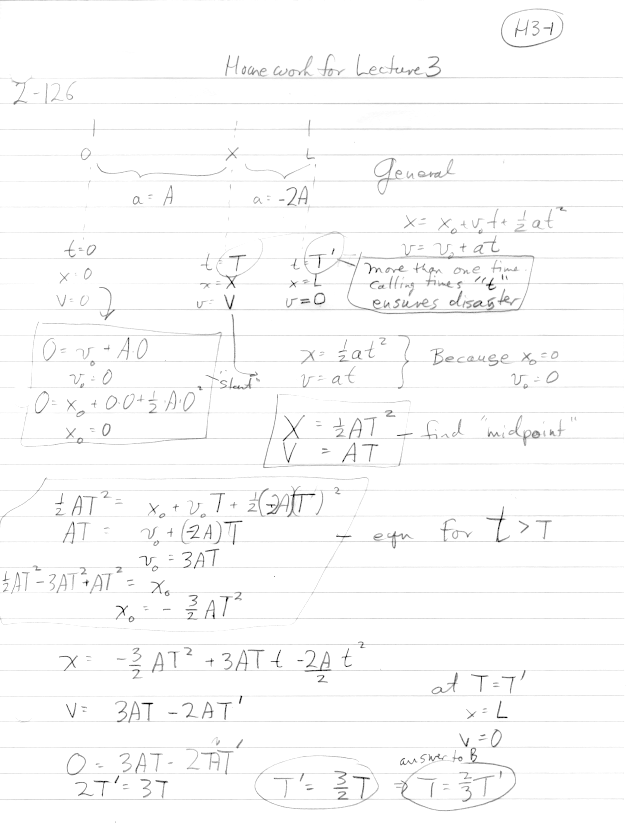 H3-1
Homework for Lecture 3
2-126
0 X L
a = A a = -2A
General
x = x₀ + v₀t + ½at²
v = v₀ + at
t=0 t = T t = T'
x=0 x=X x=L
v=0 v=V v=0
more than one time.
calling times "t"
ensures disaster
0 = v₀ + A·0
v₀ = 0
0 = x₀ + 0·0 + ½·A·0²
x₀ = 0
"start"
x = ½at² } Because x₀=0
v = at v₀=0
X = ½AT² – find "midpoint"
V = AT
½AT² = x₀ + v₀T + ½(-2A)(T)²
AT = v₀ + (-2A)T – eqn for t > T
v₀ = 3AT
½AT² - 3AT² + AT² = x₀
x₀ = - 3/2 AT²
x = -3/2 AT² + 3AT t - 2A/2 t²
v = 3AT - 2AT'
at T=T'
x = L
v = 0
0 = 3AT - 2AT'
2T' = 3T
T' = 3/2 T ⇒ T = 2/3 T'
answer to B